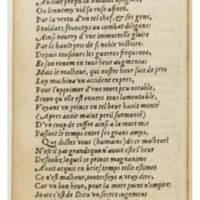 Ou l'ennemy vid sa ruse afinee,
Par la vertu d'un tel chef, & ses gens,
Souldats françoys au combat diligens:
Ainsi nourry d'une immortelle gloire
Par le haut prix de si noble victoire,
Depuis tousiours les guerres frequenta,
Et son renom en tout heur augmenta:
Mais le malheur, qui nostre heur suit de pres
Luy machina un accident expres,
Pour l'opprimer d'une mort peu notable,
Sinon qu'elle est à tous lamentable,
Voyant un prince en tel heur haut monté
(Apres avoir maint peril surmonté)
D'un coup de coffre ainsi à la mort mis
Passant le temps entre ses grans amys,
Que dictes vous (humains) de ce malheur?
N'est ce pas grand's qu'avoit cest heur
Desoubz lequel ce prince magnanime
Avoit acquis un bruit en telle estime
C'est malheur, toutesfois n'ay r dire,
Car un bon heur, pour la mort point n'empire:
Mais c'est de Dieu un secret iugement